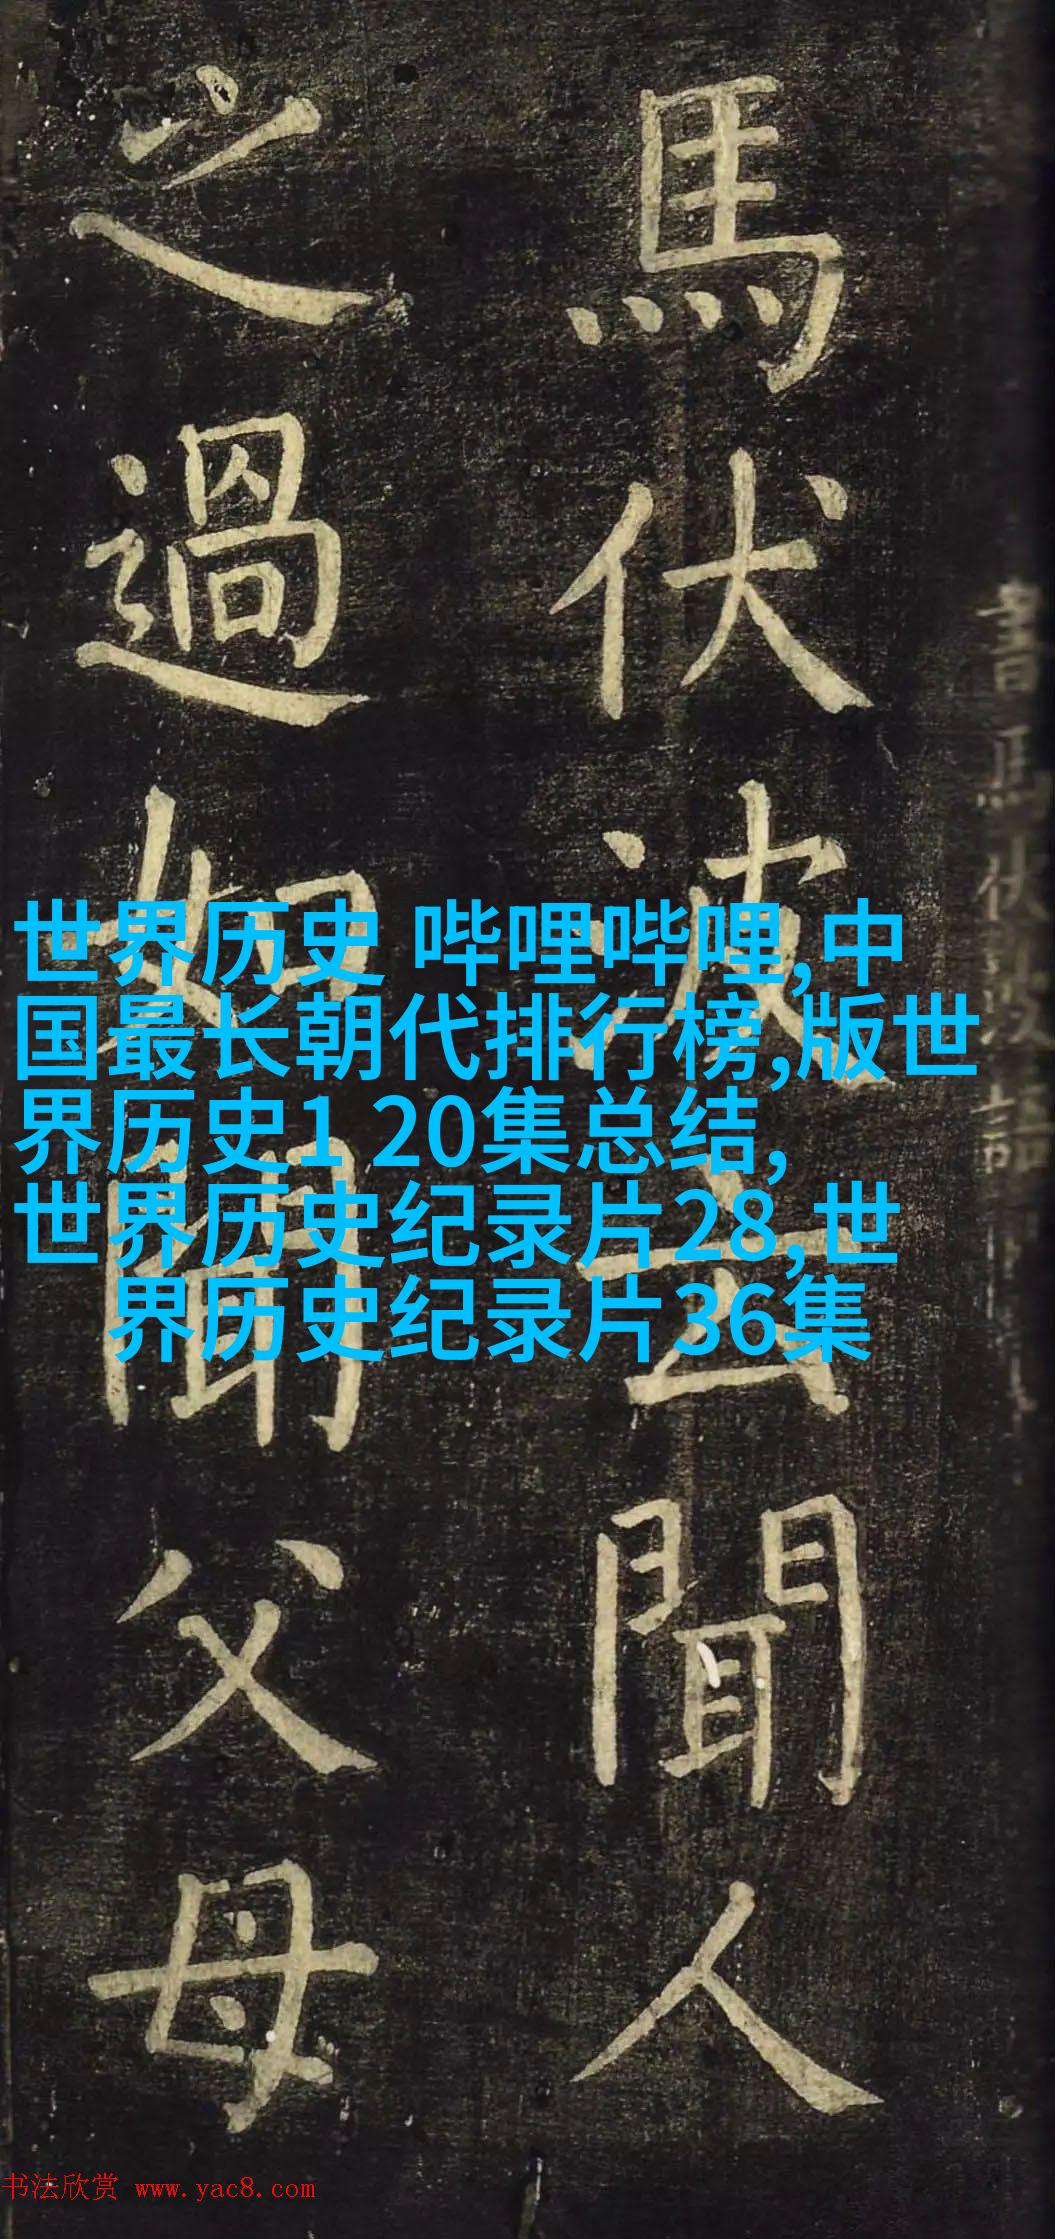 書馬伏波語
馬伏波云聞人
之過如聞父母
世界历史 哔哩哔哩,中
国最长朝代排行榜,版世
界历史1 20集总结,
世界历史纪录片28,世
界历史纪录片36集
书法欣赏 www.yac8.com